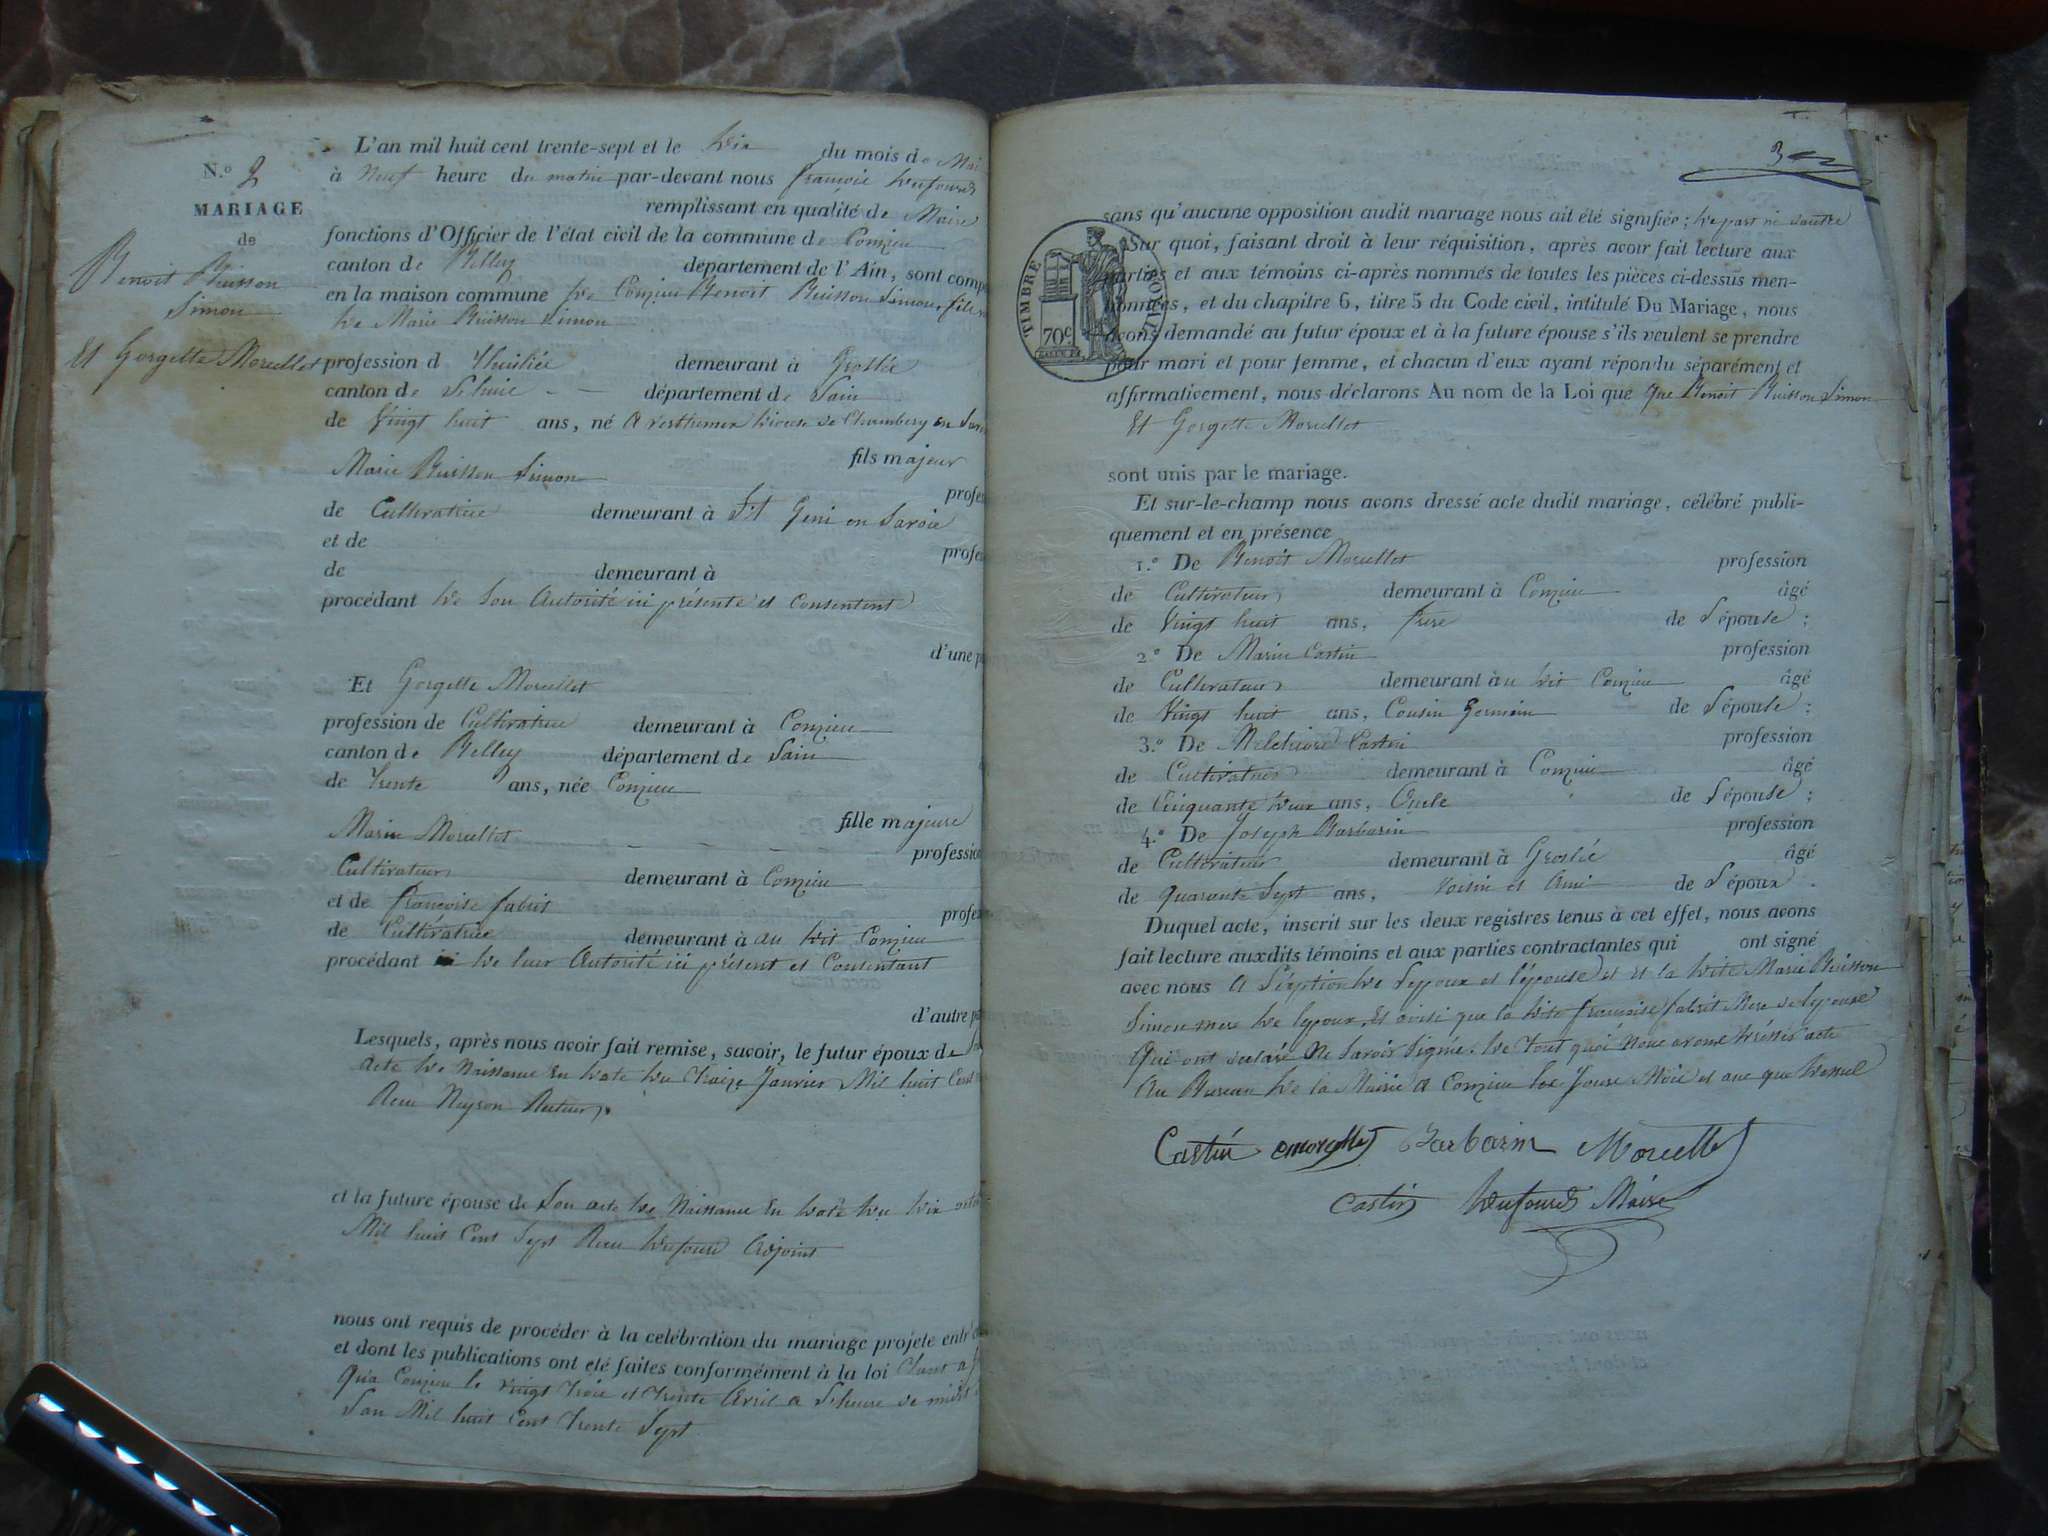 N.º 2
MARIAGE
de
Benoit Buisson
Simon
Et Gorgette Morcellet
L'an mil huit cent trente-sept et le dix du mois de Mai
à Neuf heure du matin par-devant nous françois Dufours
remplissant en qualité de Maire
fonctions d'Officier de l'état civil de la commune de Conzieu
canton de Belley département de l'Ain, sont comp
en la maison commune de Conzieu Benoit Buisson Simon, fils
de Marie Buisson Simon
profession d' demeurant à Groslée
canton de Lhuie département de Lain
de Vingt huit ans, né A verthemex diocese de Chambery en
Marie Buisson Simon fils majeur
profes
de Cultivatrice demeurant à St Geni en Savoie
et de profes
de demeurant à
procédant de Son Autorité ici présente et Consentente
d'une p
Et Gorgette Morcellet
profession de Cultivatrice demeurant à Conzieu
canton de Belley département de Lain
de trente ans, née Conzieu
Marin Morcellet fille majeure
profession
Cultivateur demeurant à Conzieu
et de francoise fabrit profes
de Cultivatrice demeurant à au dit Conzieu
procédant de leur Autorité ici présent et Consentant
d'autre p
Lesquels, après nous avoir fait remise, savoir, le futur époux de
Acte de Naissance En date du traize Janvier Mil huit Cent
Recu Neyson Recteur
et la future épouse de Son acte de Naissance En date du dix
Mil huit Cent Sept Recu Dufours Adjoint
nous ont requis de procéder à la celébration du mariage projete entr'
et dont les publications ont eté faites conformément à la loi
Qua Conzieu le vingt trois et trente Avril a Lheure de midi
Lan Mil huit Cent trente Sept
3
TIMBRE ROYAL
70c
sans qu'aucune opposition audit mariage nous ait été signifiée; de part ni dautre
Sur quoi, faisant droit à leur réquisition, après avoir fait lecture aux
parties et aux témoins ci-après nommés de toutes les pièces ci-dessus men-
tionnées, et du chapitre 6, titre 5 du Code civil, intitulé Du Mariage, nous
avons demandé au futur époux et à la future épouse s'ils veulent se prendre
pour mari et pour femme, et chacun d'eux ayant répondu séparément et
affirmativement, nous déclarons Au nom de la Loi que que Benoit Buisson Simon
Et Gorgette Morcellet
sont unis par le mariage.
Et sur-le-champ nous avons dressé acte dudit mariage, célébré publi-
quement et en présence
1.º De Benoit Morcellet profession
de Cultivateur demeurant à Conzieu âgé
de Vingt huit ans, frere de Lépouse;
2.º De Marin Castin profession
de Cultivateur demeurant à u dit Conzieu âgé
de Vingt huit ans, Cousin Germain de Lépouse;
3.º De Melchiore Castin profession
de Cultivateur demeurant à Conzieu âgé
de Cinquante deux ans, Oncle de Lépouse;
4.º De Joseph Barbarin profession
de Cultivateur demeurant à Groslée âgé
de quarante Sept ans, voisin et Ami de Lépoux.
Duquel acte, inscrit sur les deux registres tenus à cet effet, nous avons
fait lecture auxdits témoins et aux parties contractantes qui ont signé
avec nous A Léxption de Lepoux et Lépouse et et la dite Marie Buisson
Simon mere de lepoux, Et ainsi que la dite francoise fabrit Mere de lepouse
Qui ont declaré Ne Savoir Signée. De tout quoi Nous avons dréssés acte
Au Bureau de la Mairie a Conzieu les Jours Mois et ans que dessus
Castin Morcellet Barbarin Morcellet
Castin Dufours Maire